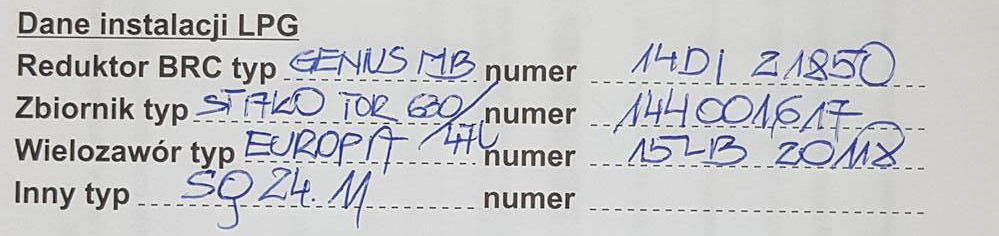 Dane instalacji LPG
Reduktor BRC typ GENIUS MB numer 14DI 21850
Zbiornik typ STAKO TOR 630/47L numer 144001617
Wielozawór typ EUROPA numer 15ZB 20118
Inny typ SQ 24.11 numer